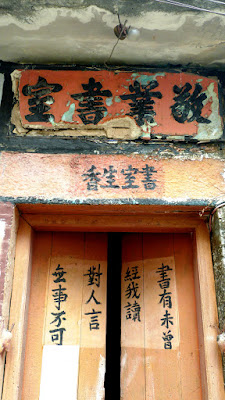 敬業書室
書室生香
書有未曾
經我讀
無事不可
對人言